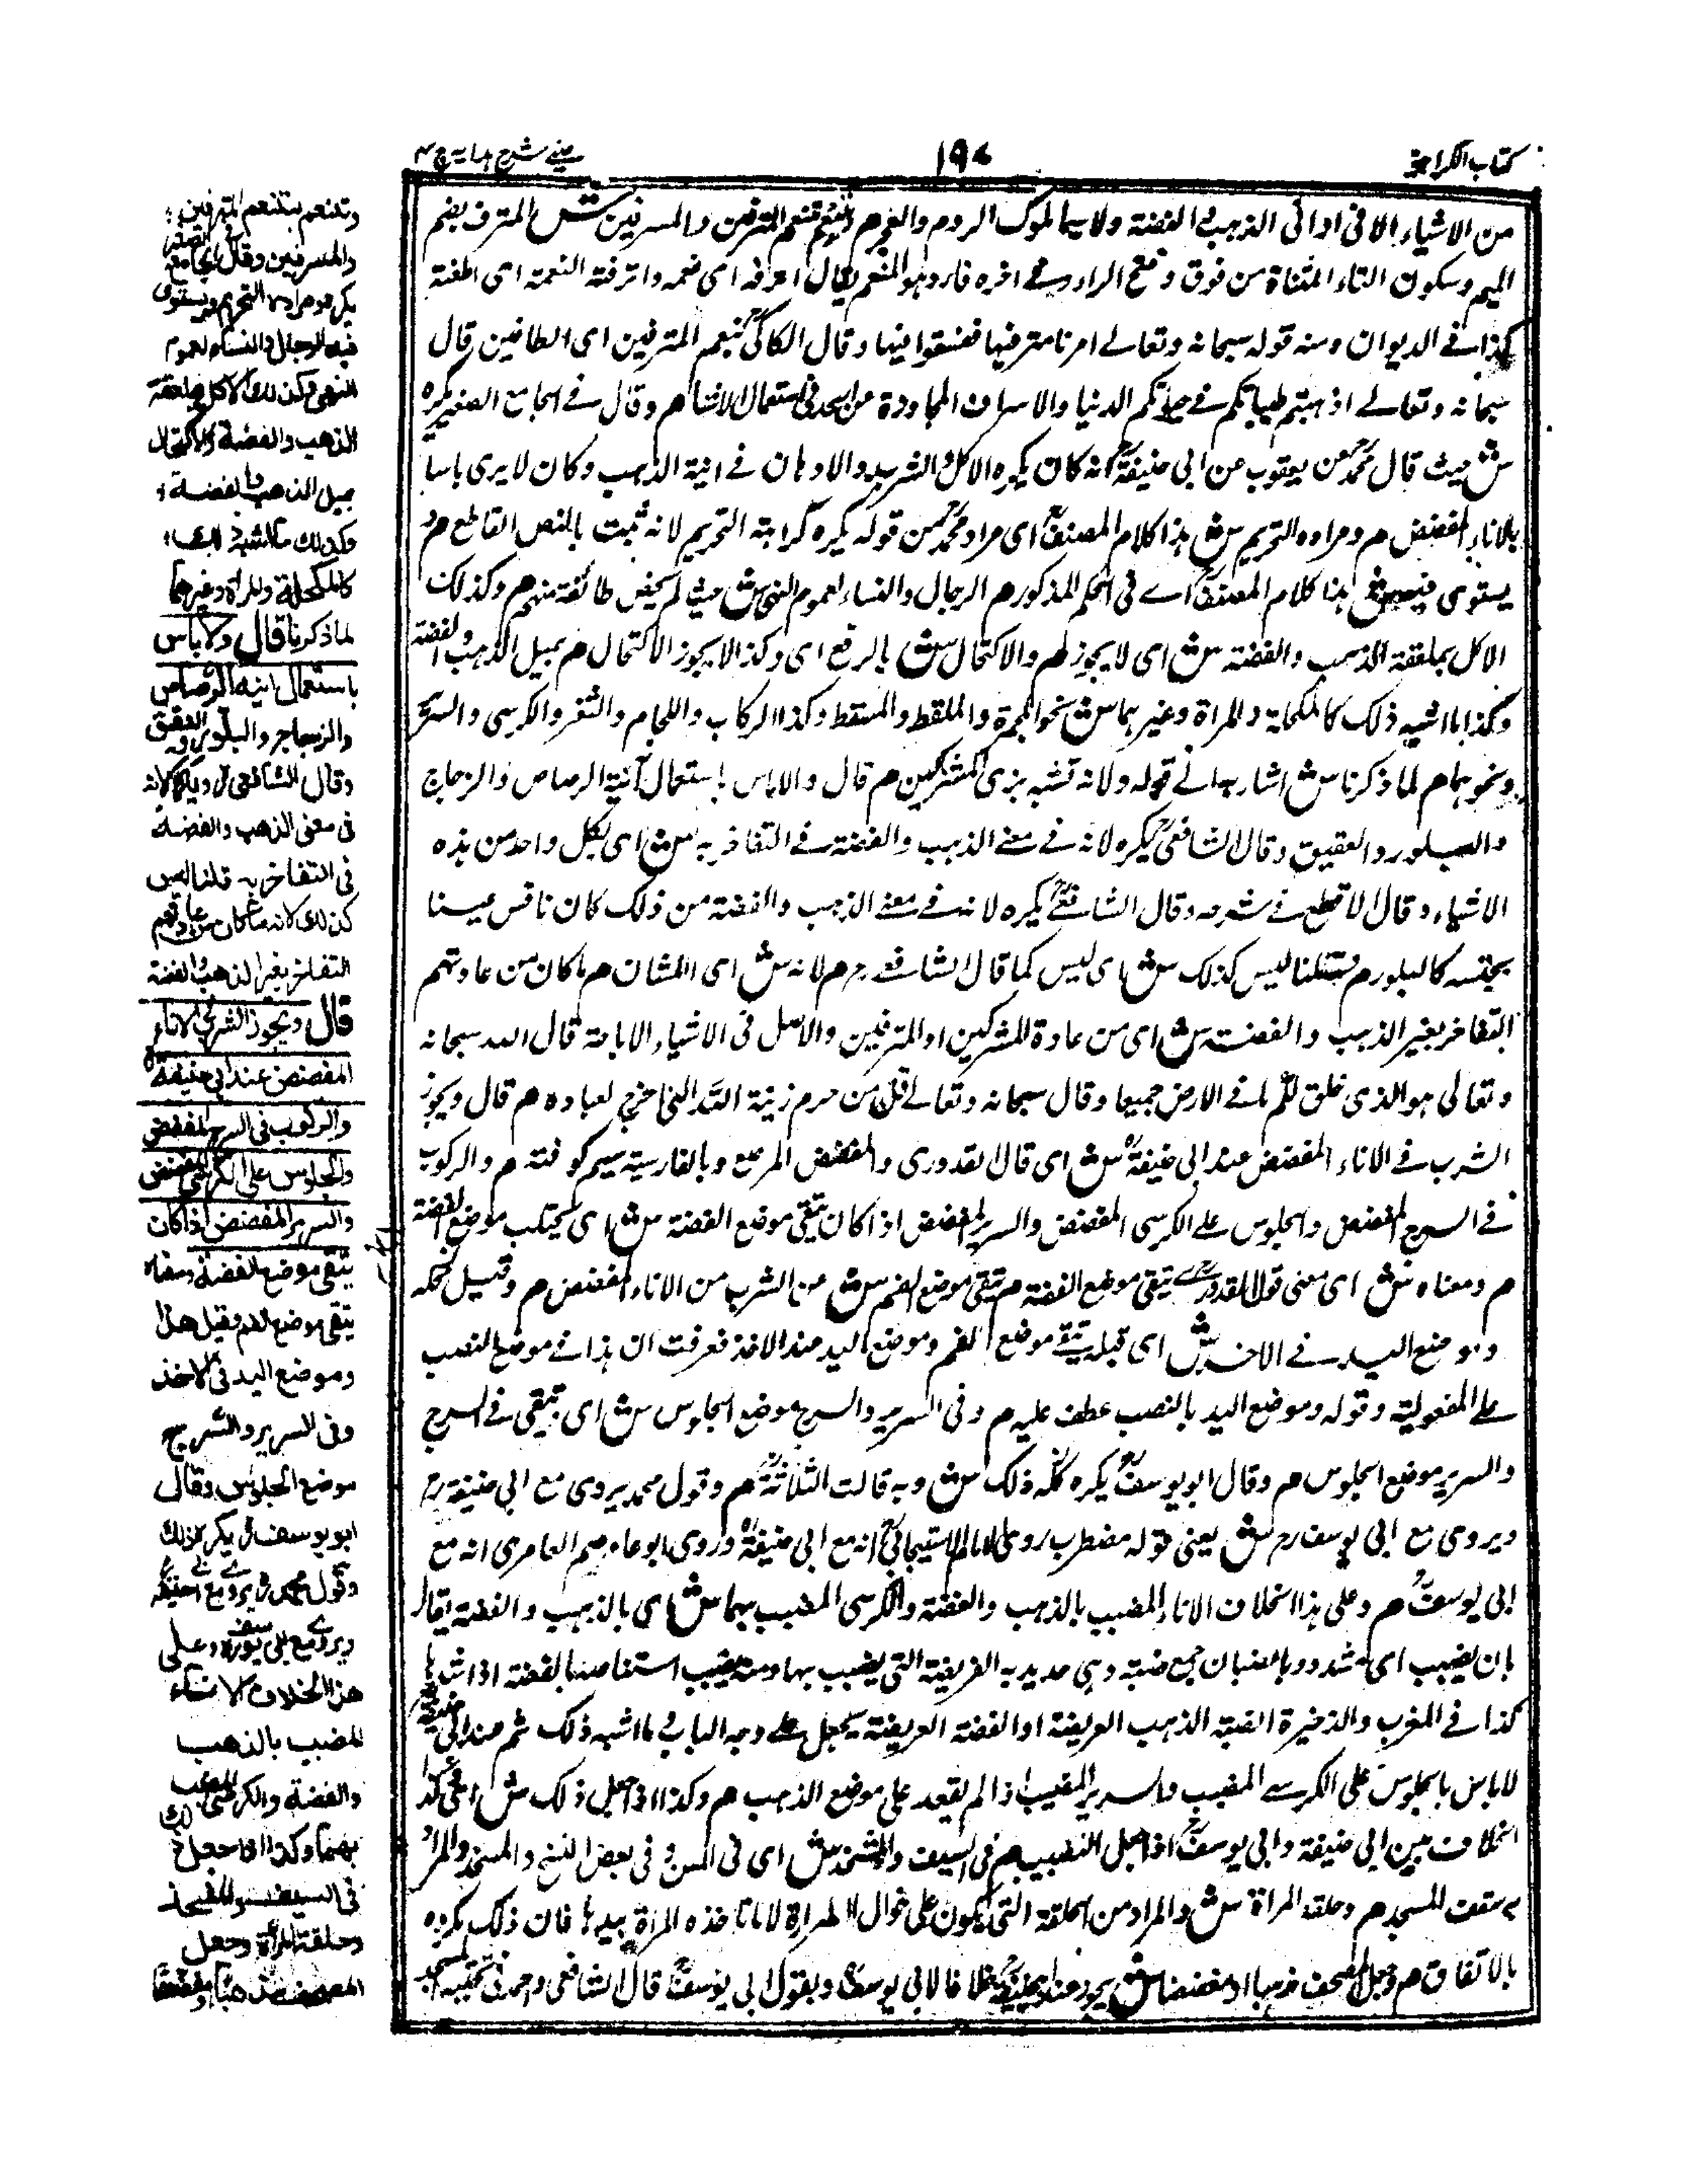 كتاب الكراهية
١٩٤
عينى شرح هداية ج ٤
من الاشياء الا فى اوانى الذهب والفضة ولا سيما ملوك الروم والعجم م وتنعم بتنعم المترفين والمسرفين ش المترف بضم
الميم وسكون التاء المثناة من فوق وفتح الراء وفى اخره فاء وهو المنعم يقال اترفه اى نعمه واترفته النعمة اى اطغته
كذا فى الديوان ومنه قوله سبحانه وتعالى امرنا مترفيها ففسقوا فيها وقال الكاكى تنعم المترفين اى الطاغين قال
سبحانه وتعالى اذهبتم طيباتكم فى حياتكم الدنيا والاسراف المجاوزة من الحد فى استعمال الاشياء م وقال فى الجامع الصغير يكره
ش حيث قال محمد عن يعقوب عن ابى حنيفة انه كان يكره الاكل والشرب والادهان فى انية الذهب وكان لا يرى باسا
بالاناء المفضض م ومراده التحريم ش هذا كلام المصنف اى مراد محمد من قوله يكره كراهة التحريم لانه ثبت بالنص القاطع م و
يستوى فيه ش هذا كلام المصنف اے فى الحكم المذكور م الرجال والنساء لعموم النهى ش حيث لم يخص طائفة منهم م وكذلك
الاكل بملعقة الذهب والفضة ش اى لا يجوز م والاكتحال ش بالرفع اى وكذا لا يجوز الاكتحال م بميل الذهب والفضة
وكذا ما اشبه ذلك كالمكحلة والمرآة وغيرهما ش نحو المجمرة والملقط والمسعط وكذا الركاب واللجام والثفر والكرسى والسرير
ونحوهما م لما ذكرنا ش اشار به الى قوله ولانه تشبه بزى المشركين م قال ولا باس باستعمال آنية الرصاص والزجاج
والبلور والعقيق وقال الشافعى يكره لانه فى معنى الذهب والفضة فى التفاخر به ش اى بكل واحد من هذه
الاشياء وقال الاقطع فى شرحه وقال الشافعى يكره لانه فى معنى الذهب والفضة من ذلك كان
كالبلور م قلنا ليس كذلك ش اى ليس كما قال الشافعى رح م لانه ش اى الشان م ما كان من عادتهم
التفاخر بغير الذهب والفضة ش اى من عادة المشركين او المترفين والاصل فى الاشياء الاباحة قال الله سبحانه
وتعالى هو الذى خلق لكم ما فى الارض جميعا وقال سبحانه وتعالى قل من حرم زينة الله التى اخرج لعباده م قال ويجوز
الشرب فى الاناء المفضض عند ابى حنيفة ش اى قال القدورى والمفضض المرصع وبالفارسية سيم كوفته م والركوب
فى السرج المفضض والجلوس على الكرسى المفضض والسرير المفضض اذا كان يتقى موضع الفضة ش اى يجتنب موضع الفضة
م ومعناه ش اى معنى قول القدورى يتقى موضع الفضة م يتقى موضع الفم ش عن الشرب من الاناء المفضض م وقيل هذا
وموضع اليد فى الاخذ ش اى قيل يتقى موضع الفم وموضع اليد عند الاخذ فعرفت ان هذا فى موضع النصب
على المفعولية وقوله وموضع اليد بالنصب عطف عليه م وفى السرير والسرج موضع الجلوس ش اى يتقى فى السرج
والسرير موضع الجلوس م وقال ابو يوسف يكره كله ذلك ش وبه قالت الثلاثة م وقول محمد يروى مع ابى حنيفة رح
ويروى مع ابى يوسف رح ش يعنى قوله مضطرب روى الامام الاسبيجابى انه مع ابى حنيفة وروى ابو عاصم العامرى انه مع
ابى يوسف م وعلى هذا الخلاف الاناء المضبب بالذهب والفضة والكرسى المضبب بهما ش اى بالذهب والفضة يقال
بان يضبب اى شدد وبالضبات جمع ضبة وهى حديدة العريضة التى يضبب بها ومنه ضبب اسنانه بالفضة اذا شدها
كذا فى المغرب والذخيرة الضبة الذهب العريضة او الفضة العريضة يجعل على وجه الباب وما اشبه ذلك ثم عند ابى حنيفة
لا باس بالجلوس على الكرسى المضبب والسرير المضبب اذا لم يقعد على موضع الذهب م وكذا اذا جعل ذلك ش اى كذا
الخلاف بين ابى حنيفة وابى يوسف اذا جعل التضبيب م فى السيف والمشحذ ش اى فى المسن وفى بعض النسخ والمسجد والمراد
به سقف المسجد م وحلقة المرآة ش والمراد من الحلقة التى يكون على حوالى المرآة لا ما تاخذه المرأة بيدها فان ذلك مكروه
بالاتفاق م وجعل المصحف مذهبا او مفضضا ش يجوز عند ابى حنيفة خلافا لابى يوسف وبقول ابى يوسف قال الشافعى واحمد فى تحلية المسجد
وتنعم بتنعم المترفين
والمسرفين وقال فى الجامع الصغير
يكره ومراده التحريم ويستوى
فيه الرجال والنساء لعموم
النهى وكذلك الاكل بملعقة
الذهب والفضة والاكتحال
بميل الذهب والفضة
وكذلك ما اشبه ذلك
كالمكحلة والمرآة وغيرهما
لما ذكرنا قال ولا باس
باستعمال انية الرصاص
والزجاج والبلور والعقيق
وقال الشافعى رح يكره لانه
فى معنى الذهب والفضة
فى التفاخر به قلنا ليس
كذلك لانه ما كان من عادتهم
التفاخر بغير الذهب والفضة
قال ويجوز الشرب فى الاناء
المفضض عند ابى حنيفة
والركوب فى السرج المفضض
والجلوس على الكرسى المفضض
والسرير المفضض اذا كان
يتقى موضع الفضة ومعناه
يتقى موضع الفم وقيل هذا
وموضع اليد فى الاخذ
وفى السرير والسرج
موضع الجلوس وقال
ابو يوسف رح يكره ذلك
وقول محمد رح يروى مع ابى حنيفة
ويروى مع ابى يوسف وعلى
هذا الخلاف الاناء
المضبب بالذهب
والفضة والكرسى المضبب
بهما وكذا اذا جعل ذلك
فى السيف والمسجد
وحلقة المرآة وجعل
المصحف مذهبا ومفضضا